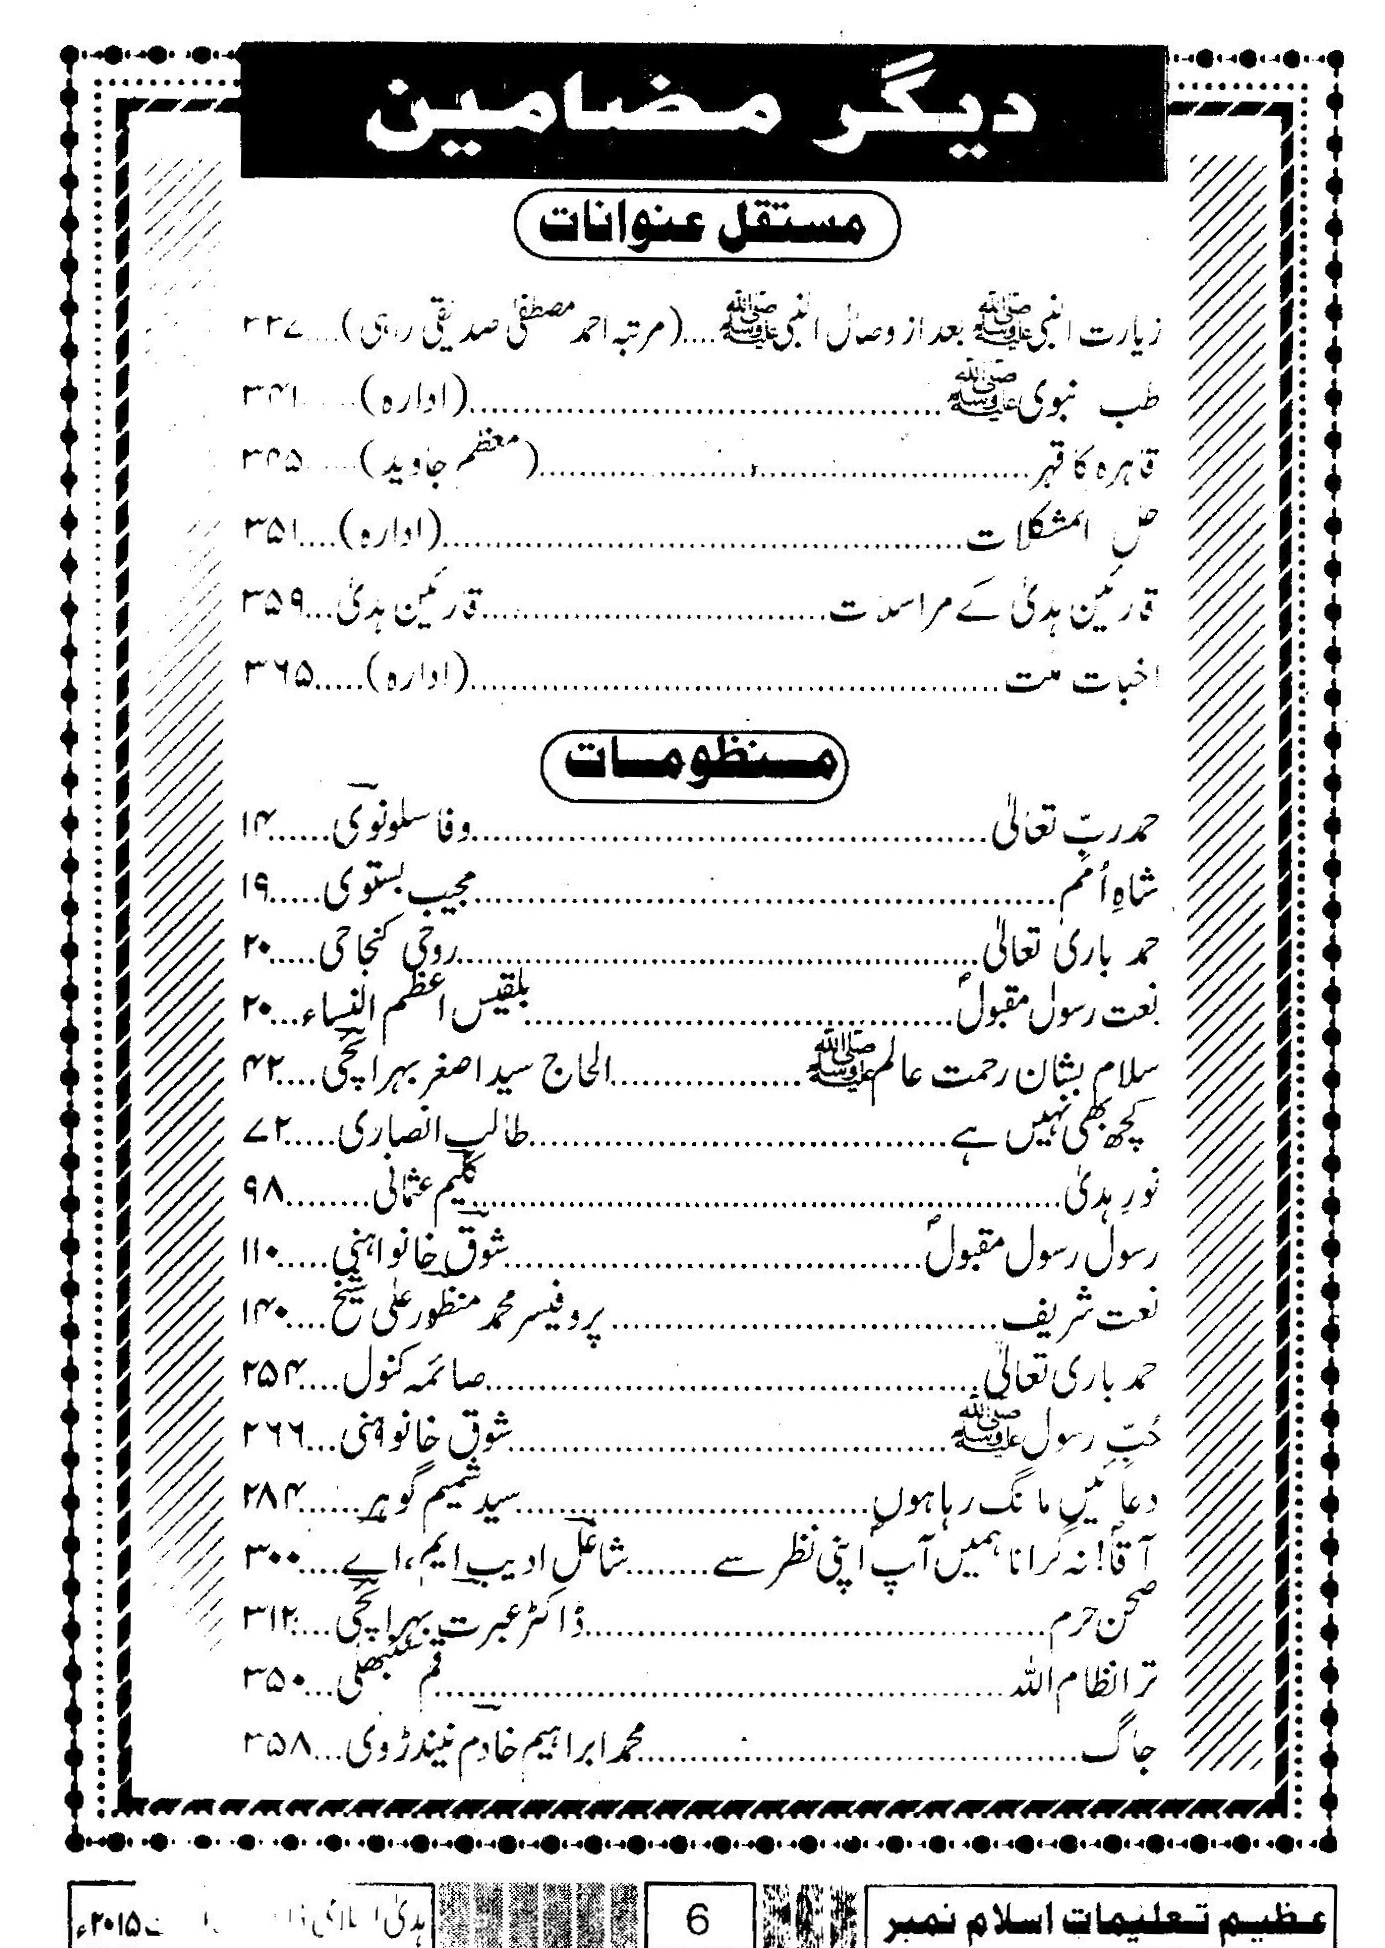 دیگر مضامین
مستقل عنوانات
زیارت النبی ﷺ بعد از وصال النبی ﷺ....(مرتبہ احمد مصطفیٰ صدیقی راہی)....۳۳۷
طب نبوی ﷺ........(ادارہ).....۳۴۱
قاہرہ کا قہر........(معظم جاوید).....۳۴۵
حل المشکلات........(ادارہ)....۳۵۱
قارئین ہدیٰ کے مراسلات........قارئین ہدیٰ...۳۵۹
اخبات ملت........(ادارہ).....۳۶۵
منظومات
حمد ربِّ تعالیٰ........وفا سلونوی......۱۴
شاہِ اُمم........مجیب بستوی.....۱۹
حمد باری تعالیٰ........روحی کنجاحی.....۲۰
نعت رسول مقبولؐ........بلقیس اعظم النساء...۲۰
سلام بشان رحمت عالم ﷺ........الحاج سید اصغر بہرائچی....۴۲
کچھ بھی نہیں ہے........طالب انصاری.....۷۲
نورِ ہدیٰ........کلیم عثمانی........۹۸
رسول رسول مقبولؐ........شوق خانواہنی.....۱۱۰
نعت شریف........پروفیسر محمد منظور علی شیخ....۱۴۰
حمد باری تعالیٰ........صائمہ کنول....۲۵۴
حُبِّ رسول ﷺ........شوق خانواہنی...۲۶۶
دعائیں مانگ رہا ہوں........سید شمیم گوہر......۲۸۴
آقاؐ! نہ گرانا ہمیں آپؐ اپنی نظر سے........شاغل ادیب ایم، اے....۳۰۰
صحن حرم........ڈاکٹر عبرت بہرائچی....۳۱۲
ترا نظام اللہ........قمر سنبھلی...۳۵۰
جاگ........محمد ابراہیم خادم نینڈڑوی...۳۵۸
عظیم تعلیمات اسلام نمبر
6
ہدیٰ اسلامی ۲۰۱۵ء